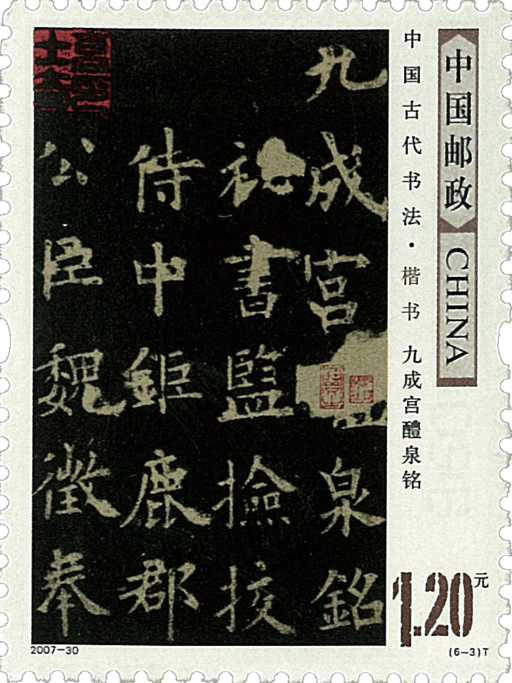 中国邮政
CHINA
中国古代书法·楷书 九成宫醴泉铭
九成宮泉銘
祕書監撿挍
侍中鉅鹿郡
公臣魏徵奉
1.20元
2007-30
(6-3)T